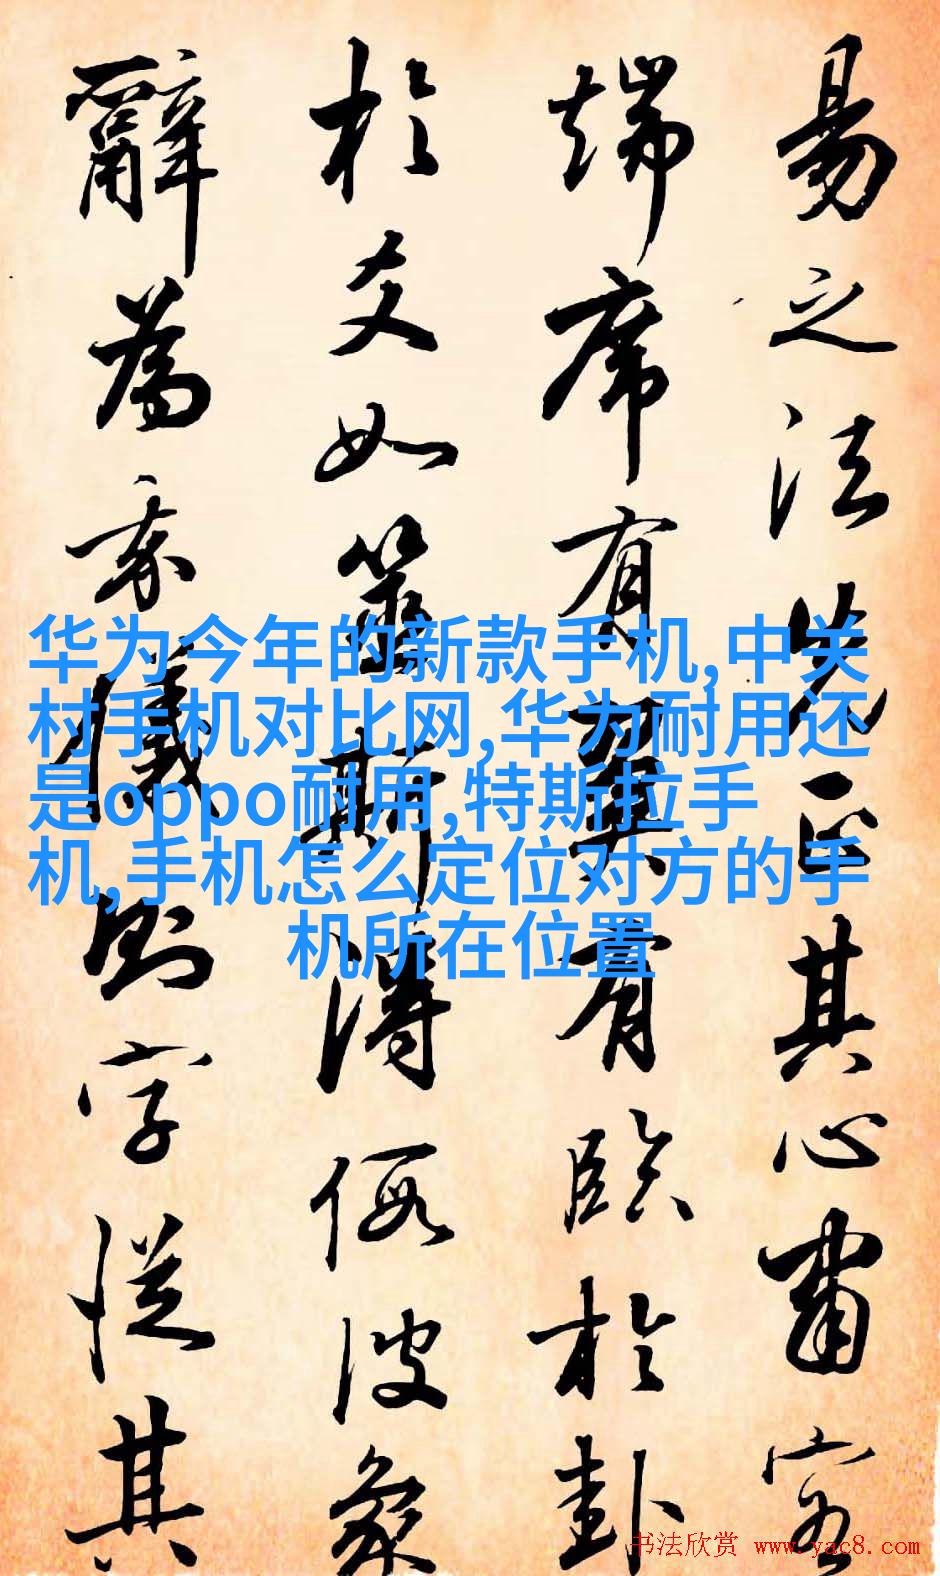 易之法先正其心肅容
端席有翼有臨於卦
於爻如筮斯得假彼象
辭為我儀則字從其
华为今年的新款手机,中关
村手机对比网,华为耐用还
是oppo耐用,特斯拉手
机,手机怎么定位对方的手
机所在位置
书法欣赏 www.yac8.com